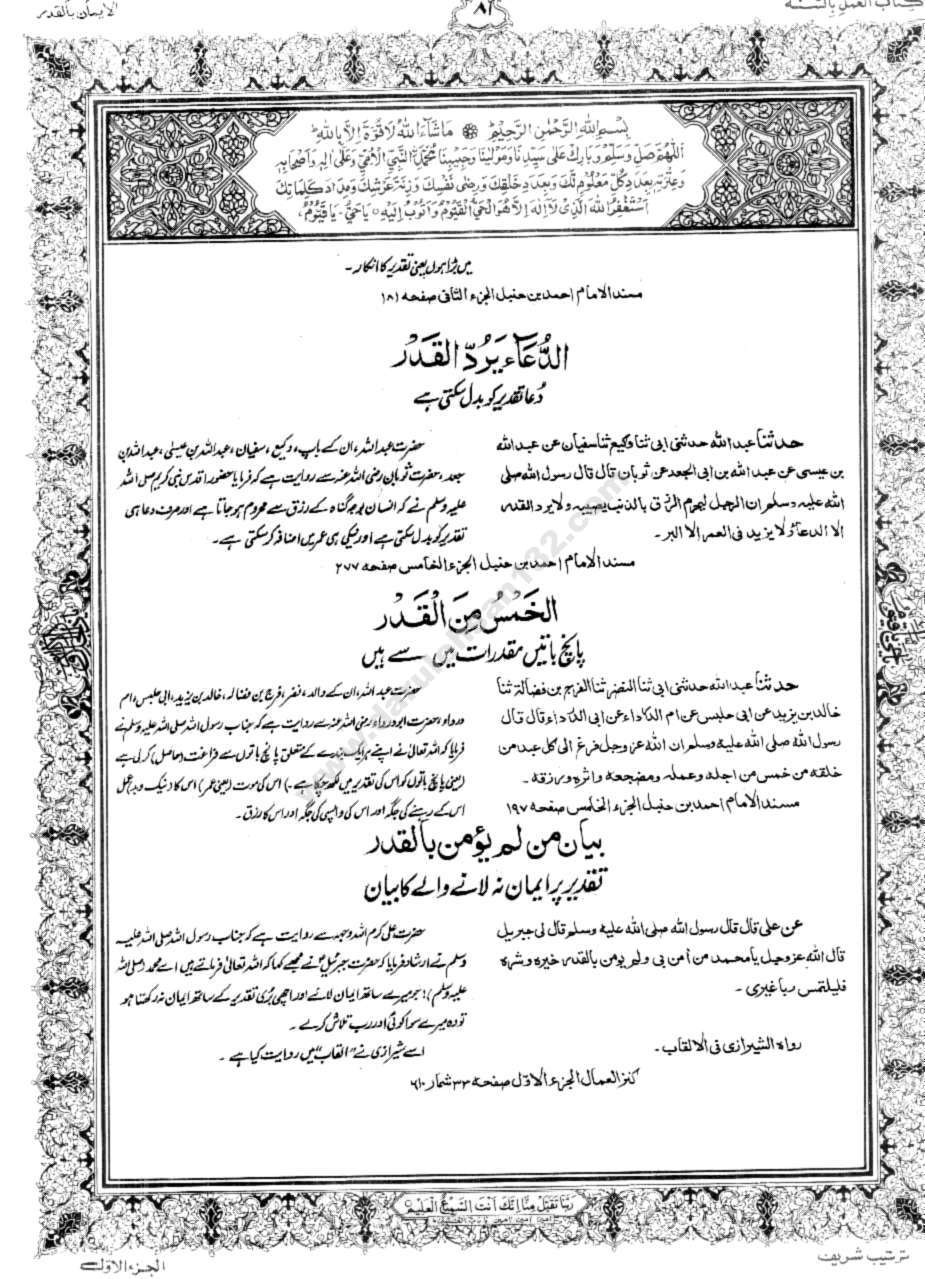 كتاب العمل بالسنة
٨١
الايمان بالقدر
بِسْمِ اللهِ الرَّحْمٰنِ الرَّحِيْمِ مَا شَآءَ اللهُ لَا قُوَّةَ اِلَّا بِاللهِ
اَللّٰهُمَّ صَلِّ وَسَلِّمْ وَبَارِكْ عَلٰى سَيِّدِنَا وَمَوْلٰينَا وَحَبِيْبِنَا مُحَمَّدِ النَّبِيِّ الْاُمِّيِّ وَعَلٰى اٰلِهٖ وَاَصْحَابِهٖ
وَعِتْرَتِهٖ بِعَدَدِ كُلِّ مَعْلُوْمٍ لَّكَ وَبِعَدَدِ خَلْقِكَ وَرِضٰى نَفْسِكَ وَزِنَةِ عَرْشِكَ وَمِدَادَ كَلِمَاتِكَ
اَسْتَغْفِرُ اللهَ الَّذِىْ لَآ اِلٰهَ اِلَّا هُوَ الْحَىُّ الْقَيُّوْمُ وَاَتُوْبُ اِلَيْهِ يَا حَىُّ يَا قَيُّوْمُ
میں بڑا ہوں یعنی تقدیر کا انکار۔
مسند الامام احمد بن حنبل الجزء الثانی صفحه ١٨١
الدُّعَآءُ يَرُدُّ الْقَدْرَ
دُعا تقدیر کو بدل سکتی ہے
حدثنا عبد الله حدثنی ابی ثنا وکیع ثنا سفیان عن عبد الله
بن عیسی عن عبد الله بن ابی الجعد عن ثوبان قال قال رسول الله صلی
الله علیه وسلم ان الرجل لیحرم الرزق بالذنب یصیبه ولا یرد القدر
الا الدعاء ولا یزید فی العمر الا البر۔
حضرت عبداللہ، ان کے باپ، وکیع، سفیان، عبداللہ بن عیسیٰ، عبداللہ بن
جعد، حضرت ثوبان رضی اللہ عنہ سے روایت ہے کہ فرمایا حضور اقدس نبی کریم صلی اللہ
علیہ وسلم نے کہ انسان بوجہ گناہ کے رزق سے محروم ہوجاتا ہے اور صرف دعا ہی
تقدیر کو بدل سکتی ہے اور نیکی ہی عمر میں اضافہ کر سکتی ہے۔
مسند الامام احمد بن حنبل الجزء الخامس صفحه ٢٧٧
الْخَمْسُ مِنَ الْقَدْرِ
پانچ باتیں مقدرات میں سے ہیں
حدثنا عبد الله حدثنی ابی ثنا النضر ثنا الفرج بن فضالة ثنا
خالد بن یزید عن ابی حلبس عن ام الدرداء عن ابی الدرداء قال قال
رسول الله صلی الله علیه وسلم ان الله عز وجل فرغ الی کل عبد من
خلقه من خمس من اجله وعمله ومضجعه واثره ورزقه۔
مسند الامام احمد بن حنبل الجزء الخامس صفحه ١٩٧
حضرت عبداللہ، ان کے والد، نضر، فرج بن فضالہ، خالد بن یزید، ابی حلبس، ام
درداء، حضرت ابودرداء رضی اللہ عنہ سے روایت ہے کہ جناب رسول اللہ صلی اللہ علیہ وسلم نے
فرمایا کہ اللہ تعالیٰ نے اپنے ہر ایک بندے کے متعلق پانچ باتوں سے فراغت (حاصل) کرلی ہے
(یعنی پانچ باتوں کو اس کی تقدیر میں لکھ چکا ہے۔) اس کی موت (یعنی عمر) اس کا نیک و بد عمل
اس کے رہنے کی جگہ اور اس کی واپسی کی جگہ اور اس کا رزق۔
بیان من لم یؤمن بالقدر
تقدیر پر ایمان نہ لانے والے کا بیان
عن علی قال قال رسول الله صلی الله علیه وسلم قال لی جبریل
قال الله عز وجل یا محمد من آمن بی ولم یومن بالقدر خیره وشره
فلیلتمس ربا غیری۔
رواه الشیرازی فی الالقاب۔
حضرت علی کرم اللہ وجہہ سے روایت ہے کہ جناب رسول اللہ صلی اللہ علیہ
وسلم نے ارشاد فرمایا کہ حضرت جبرئیل نے مجھے کہا کہ اللہ تعالیٰ فرماتے ہیں اے محمد (صلی اللہ
علیہ وسلم)! جو میرے ساتھ ایمان لائے اور اچھی بُری تقدیر کے ساتھ ایمان نہ رکھتا ہو
تو وہ میرے سوا کوئی اور رب تلاش کرلے۔
اسے شیرازی نے "القاب" میں روایت کیا ہے۔
کنز العمال الجزء الاوّل صفحه ٣٣ شمار ٦١٠
رَبَّنَا تَقَبَّلْ مِنَّا اِنَّكَ اَنْتَ السَّمِيْعُ الْعَلِيْمُ
ترتیب شریف
الجزء الاوّل